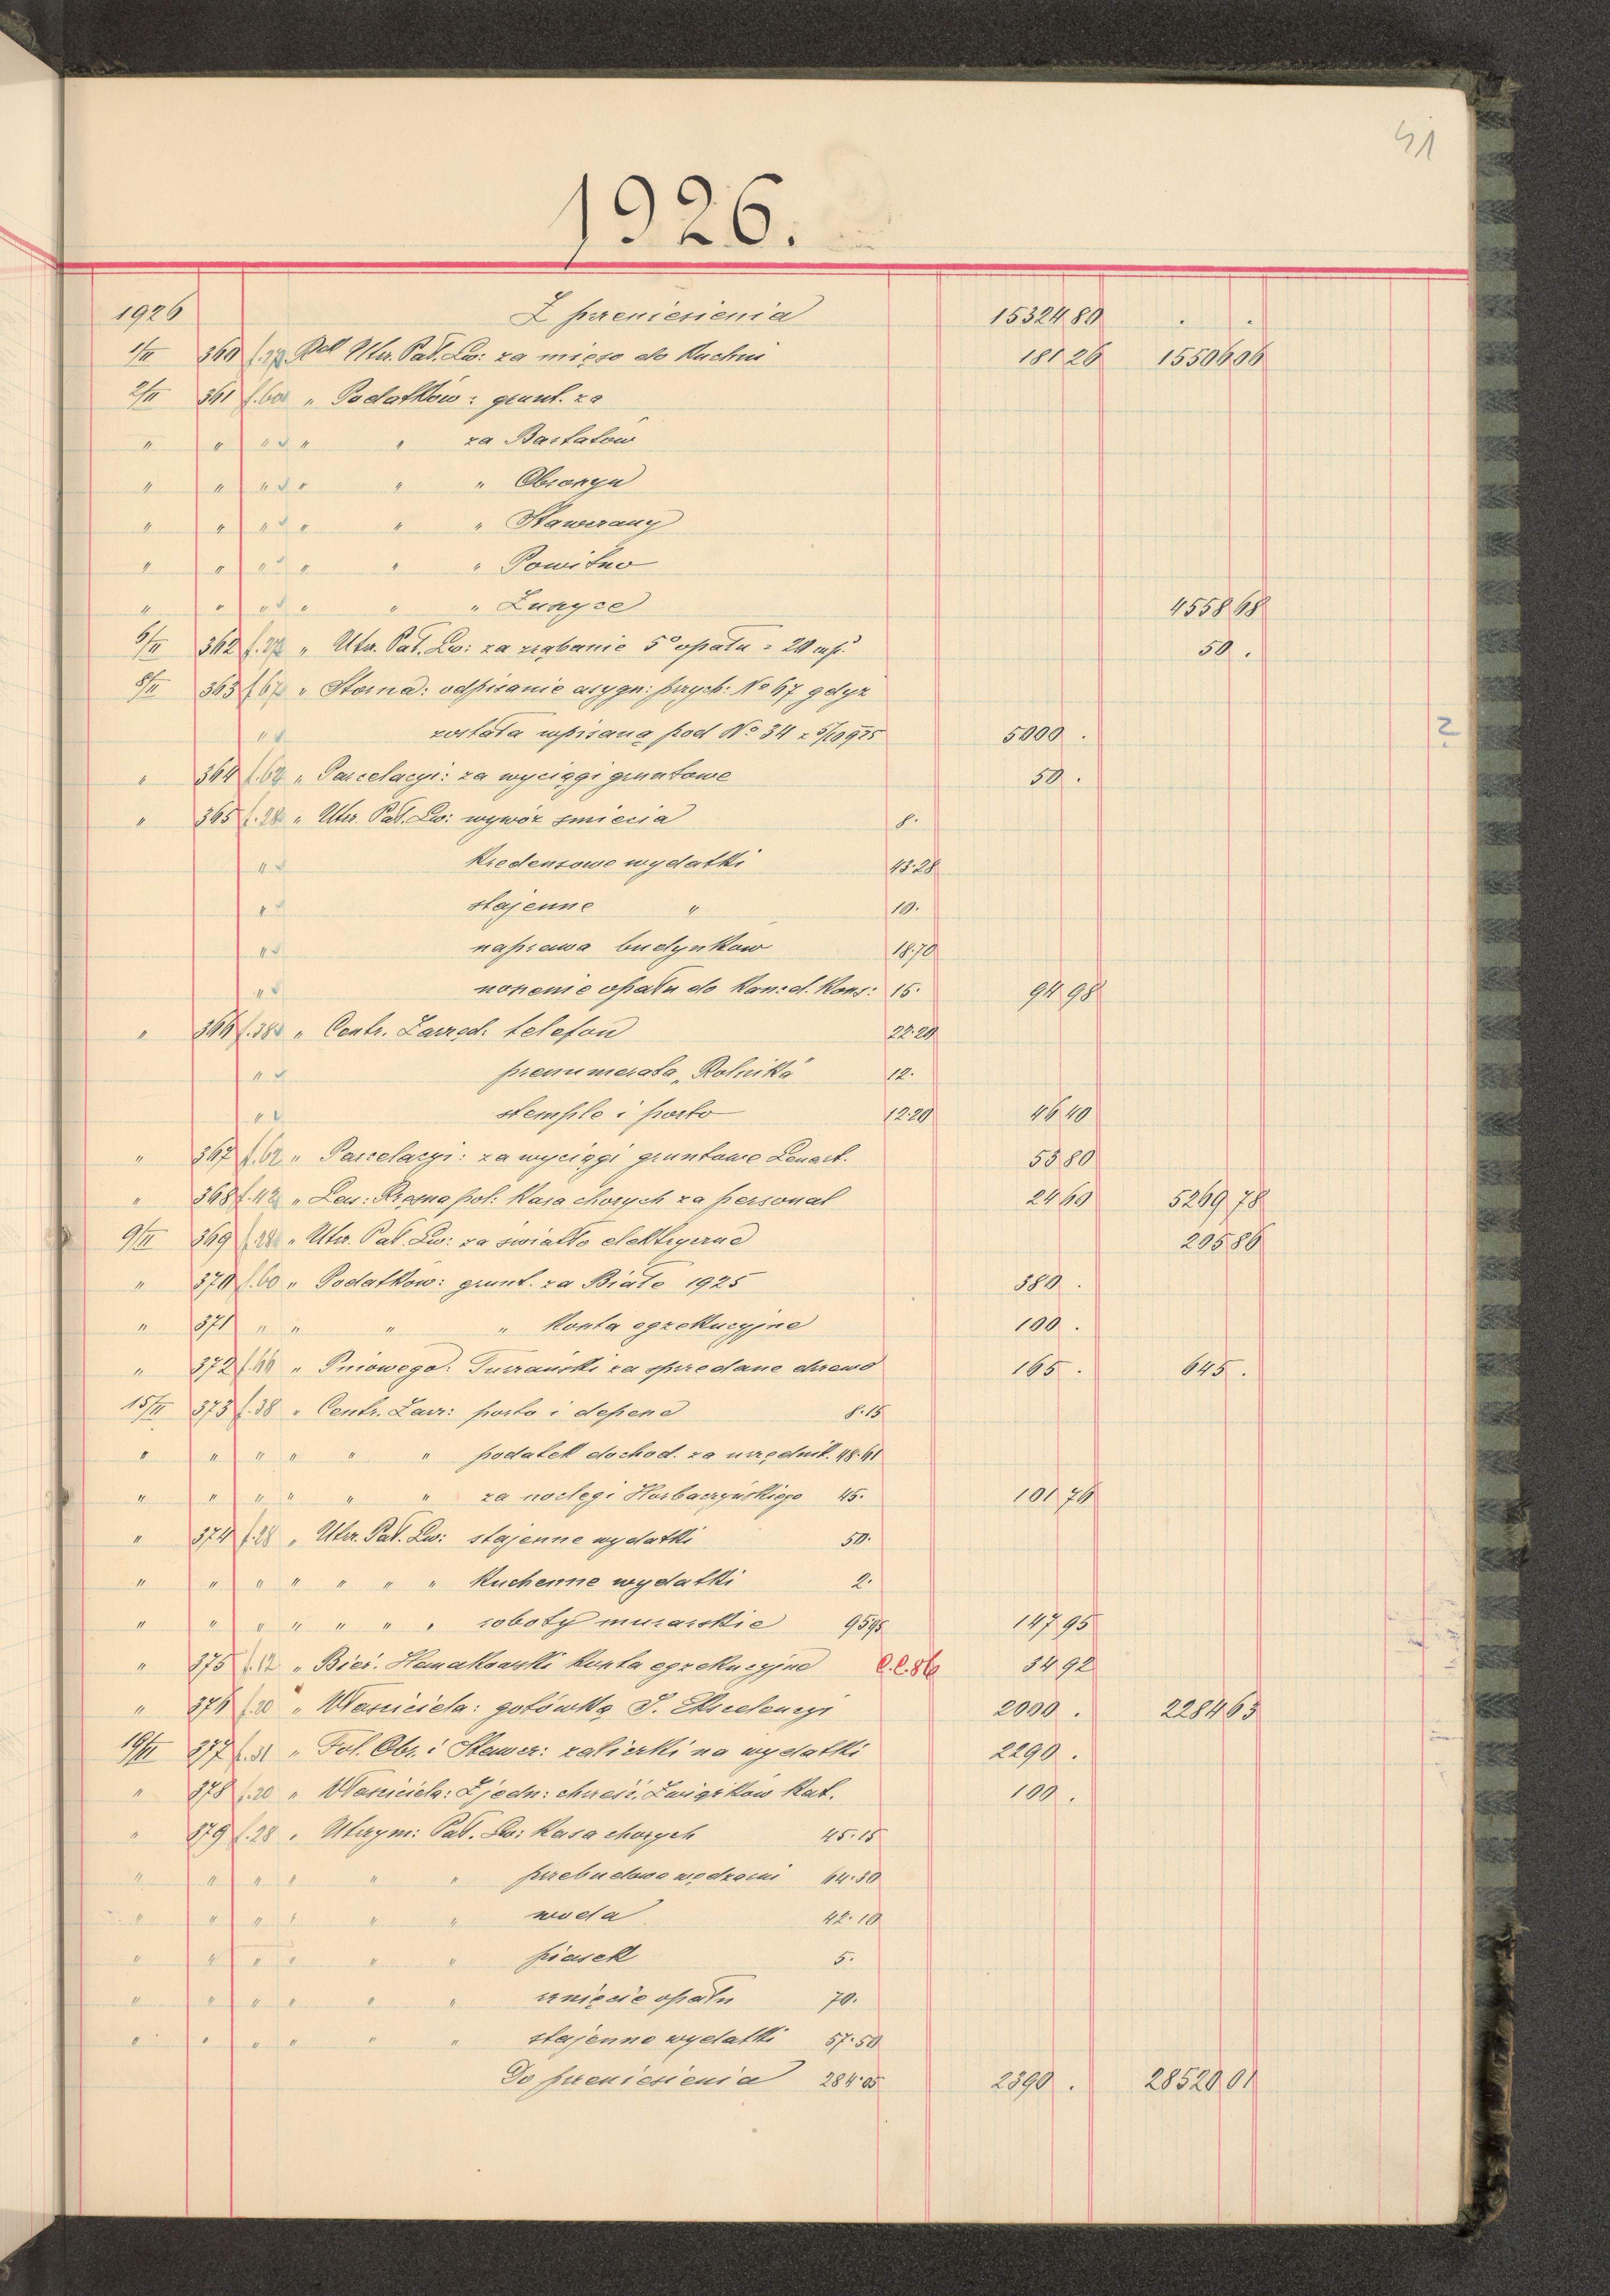 41
1926.
1926 Z przeniesienia 15324 80 . .
1/II 360 f.27 Rch Utrz. Pał. Lw: za mięso do Kuchni 181 26 15506 06
2/II 361 f.60 " Podatków: grunt. za
" " " " " za Bartatów
" " " " " " Obroszyn
" " " " " " Stawczany
" " " " " " Powitno
" " " " " " Zuszyce 4558 68
6/II 362 f.27 " Utrz. Pał. Lw: za zrąbanie 5° opału = 20 mp.³ 50 .
8/II 363 f.67 " Storna: odpisanie asygn: przych: No 67 gdyż
" została wpisaną pod No 34 z 5/10 925 5000 .
" 364 f.62 " Parcelacyi: za wyciągi gruntowe 50 .
" 365 f.28 " Utrz. Pał. Lw: wywóz śmiecia 8.
" Kredensowe wydatki 43.28
" stajenne " 10.
" naprawa budynków 18.70
" noszenie opału do Kanc. d. Kons: 15. 94 98
" 366 f.38 " Centr. Zarząd: telefon 22.20
" prenumerata „Rolnika" 12.
" stemple i porto 12.20 46 40
" 367 f.62 " Parcelacyi: za wyciągi gruntowe Lenart. 53 80
" 368 f.42 " Las: Rzęsna pol: Kasa chorych za personal 24 60 5269 78
9/II 369 f.28 " Utrz. Pał. Lw: za światło elektryczne 205 86
" 370 f.60 " Podatków: grunt. za Białe 1925 380 .
" 371 " " " " Koszta egzekucyjne 100 .
" 372 f.66 " Pniowego: Turzański za sprzedane drzewo 165 . 645 .
15/II 373 f.38 " Centr. Zarz: porto i depesze 8.15
" " " " " " podatek dochod. za urzędnik. 48.61
" " " " " " za noclegi Horbaczyńskiego 45. 101 76
" 374 f.28 " Utrz. Pał. Lw: stajenne wydatki 50.
" " " " " " " Kuchenne wydatki 2.
" " " " " " " roboty murarskie 95 95 147 95
" 375 f.12 " Bież: koszta egzekucyjne C.C.86 34 92
" 376 f.20 " Właściciela: gotówką J. Ekscelencyi 2000 . 2284 63
19/II 377 f.31 " Fol. Obr. i Stawcz: zaliczki na wydatki 2290 .
" 378 f.20 " Właściciela: Zjedn: chrześć. Związków Kat. 100 .
" 379 f.28 " Utrzym: Pał. Lw: Kasa chorych 45.15
" " " " " " przebudowa wędzarni 64.30
" " " " " " woda 42.10
" " " " " " piasek 5.
" " " " " " rznięcie opału 70.
" " " " " " stajenne wydatki 57.50
Do przeniesienia 284.05 2390 . 28520 01